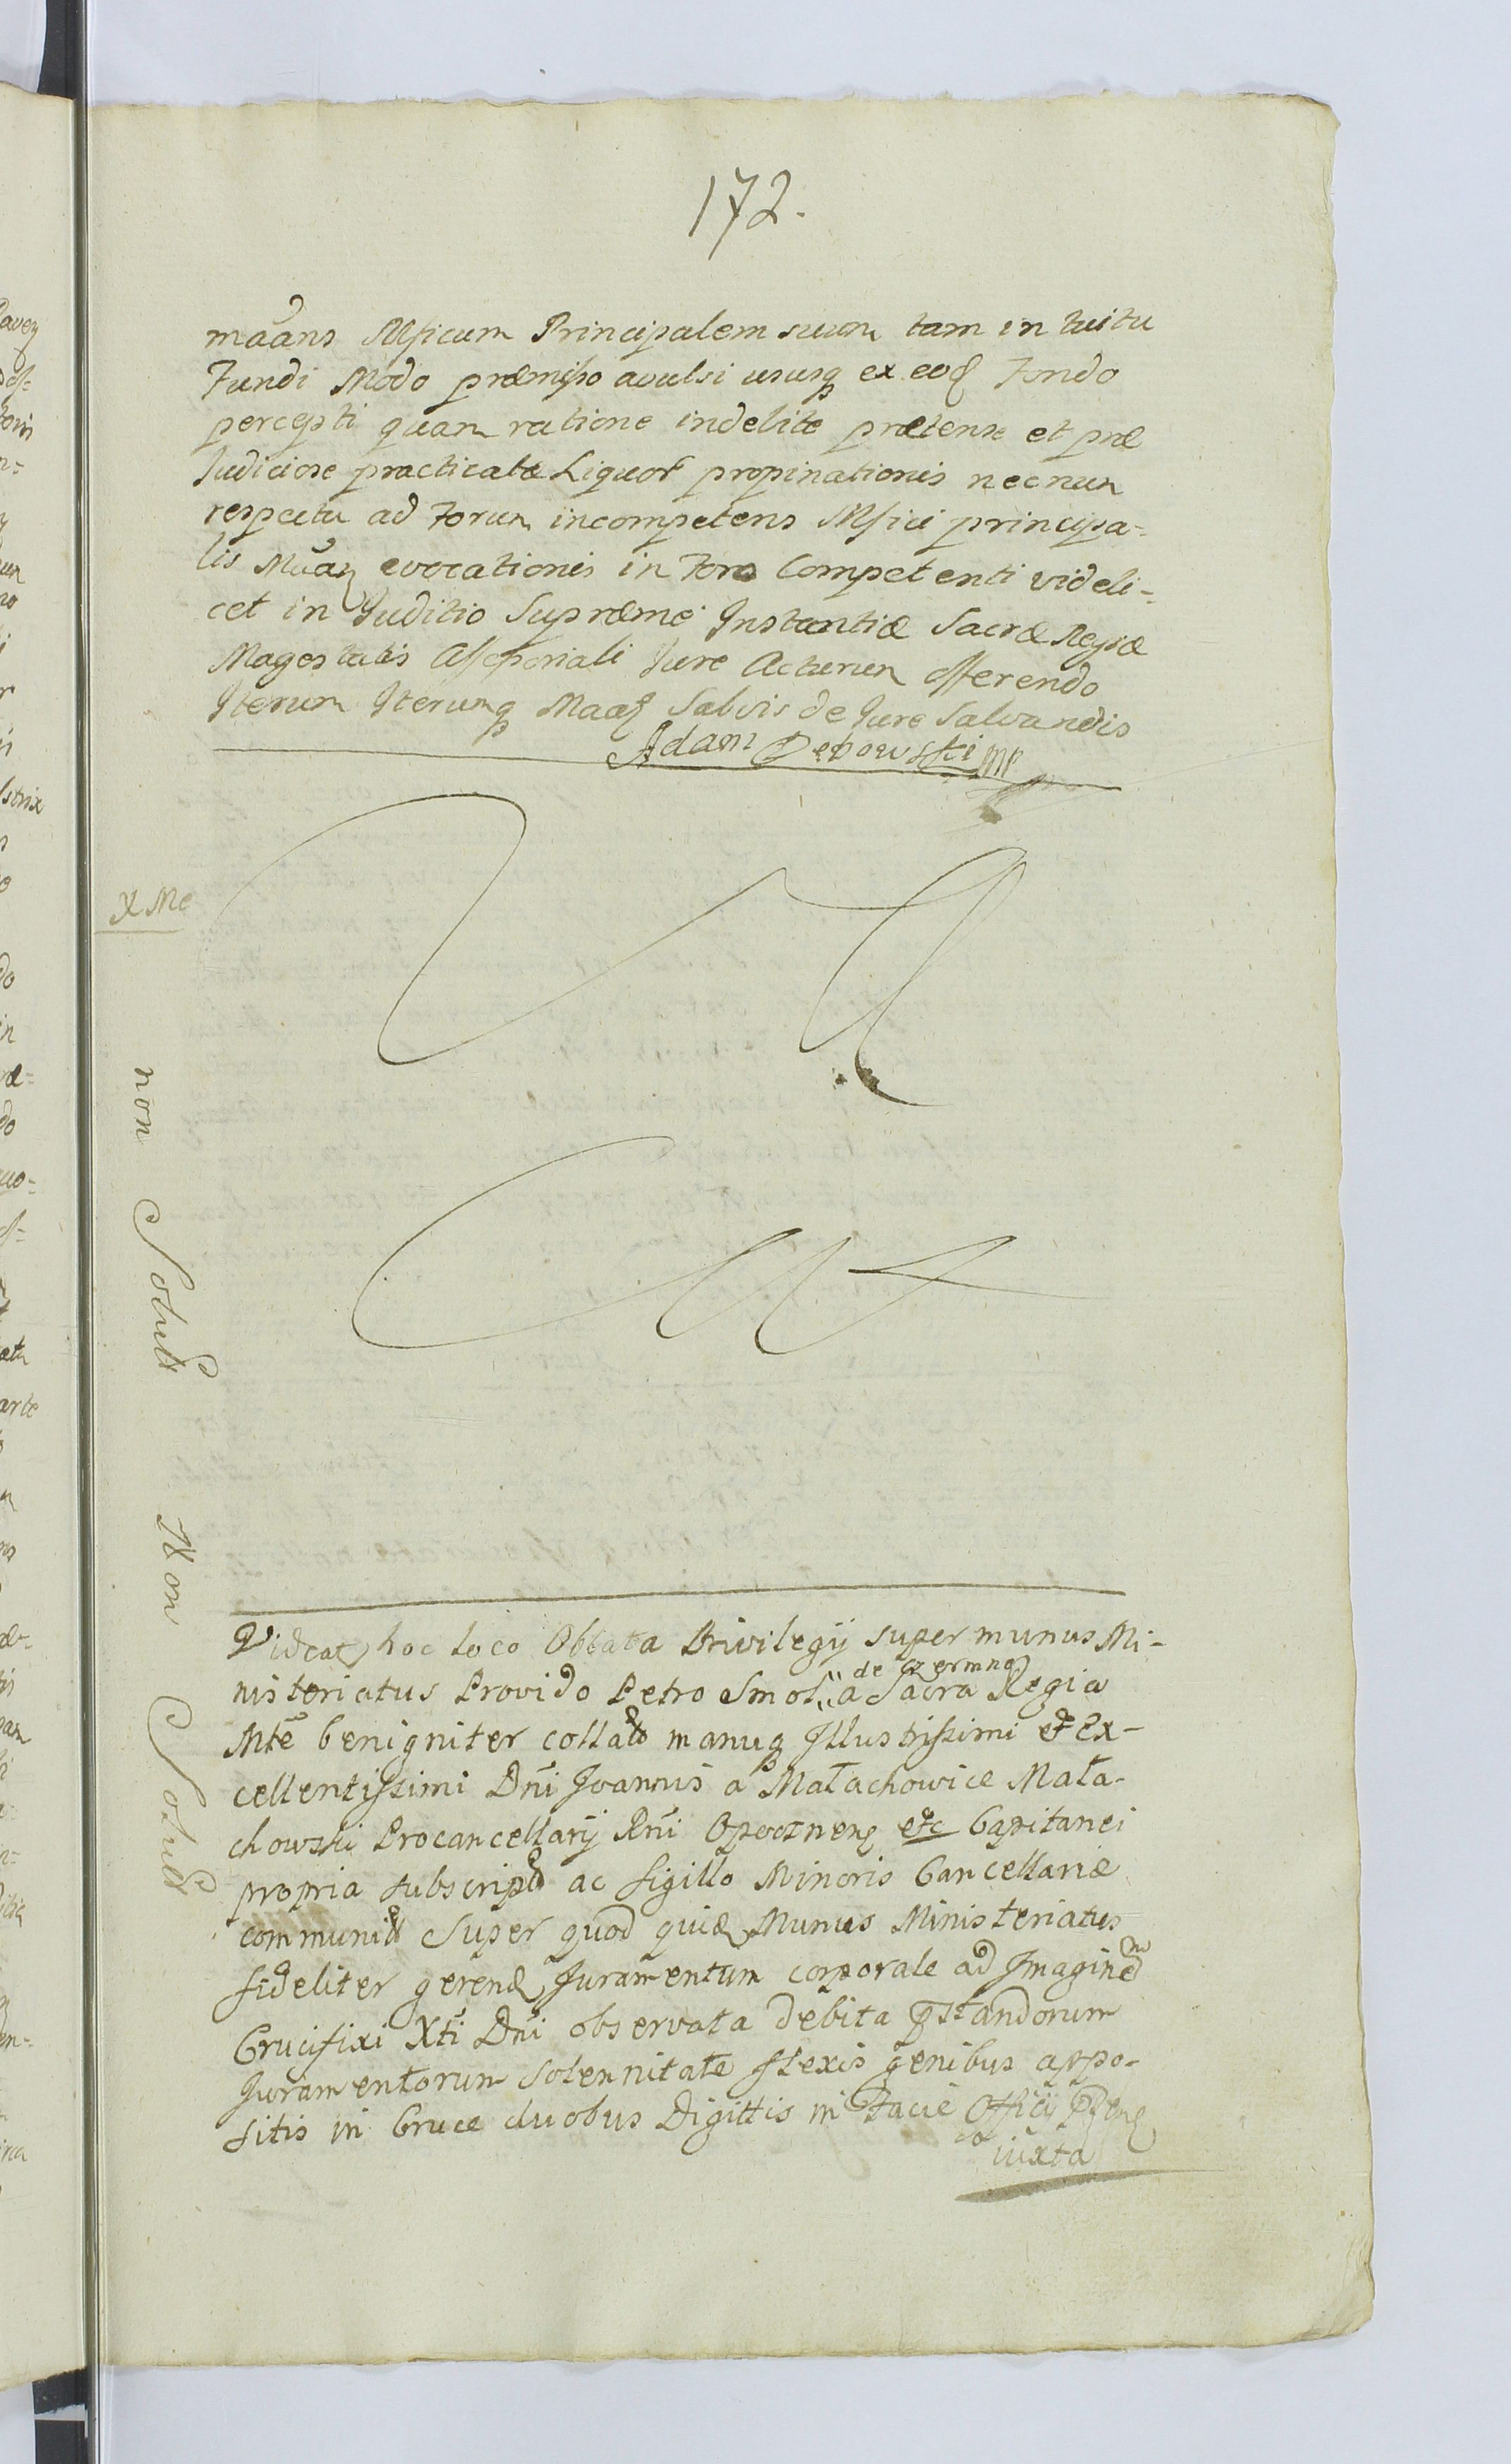 172.
maans Mficum Principalem suum tam in tuitu
Fundi Modo præmisso avulsi ususq ex eod Fondo
percepti quam ratione indebite prætensæ et præ
Judiciose practicatæ Liquor propinationis necnun
respectu ad Forum incompetens Mfici principa-
lis evocationis in Foro Competenti videli-
cet in Juditio Supræmæ Instantiæ Sacræ Regiæ
Magestatis Assessoriali Jure Acturum offerendo
Iterum Iterumq Salvis de Jure Salvandis
Adam Debowski mp
non Solut
Non Solut
Videat hoc loco Oblata Privilegij super munus Mi-
nisteriatus Provido Petro Smol"
de Czermno
"a Sacra Regia
Mte benigniter collat manuq Illustrissimi et Ex-
cellentissimi Dni Joannis a Małachowice Mała-
chowski Procancellarij Rni Opocznen etc Capitanei
propria subscript ac sigillo Minoris Cancellariæ
communit Super quod quid Munus Ministeriatus
fideliter gerend Juramentum corporale ad Imaginem
Crucifixi Xti Dni observata debita pstandorum
Juramentorum Solennitate flexis genibus appo-
sitis in Cruce duobus Digittis in Facie Officij
iuxta